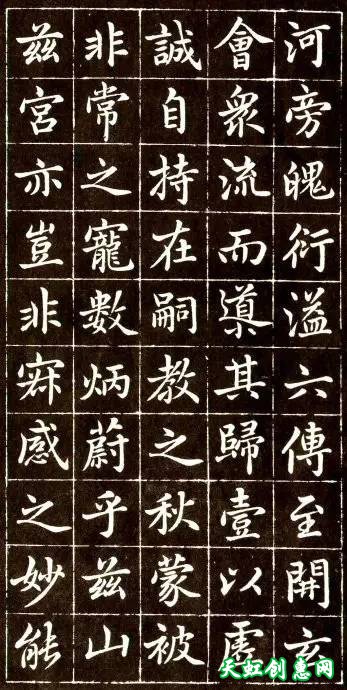 河旁魄衍溢六傳至開玄
會衆流而導其歸壹以虛
誠自持在嗣教之秋蒙被
非常之寵數炳蔚乎茲山
茲宮亦豈非寂感之妙能
天虹创惠网